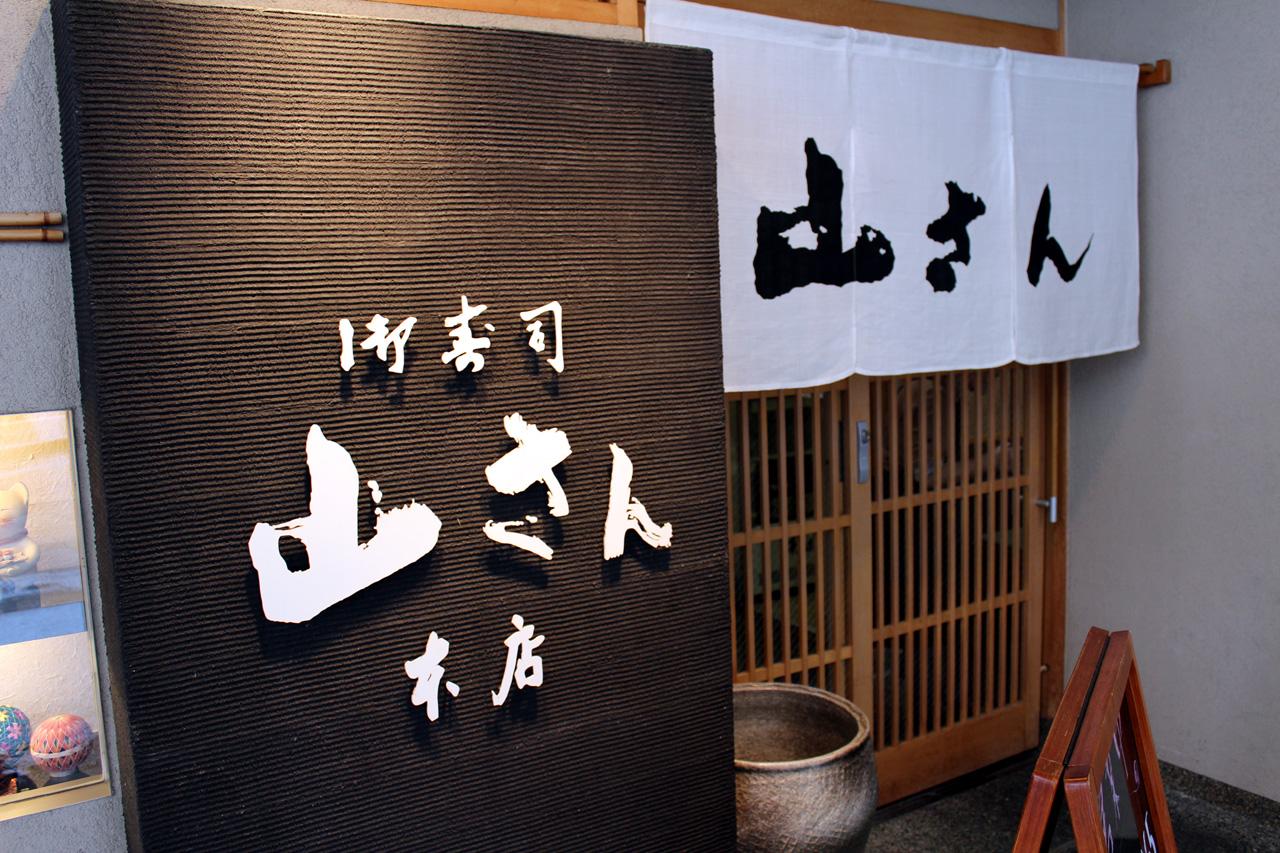 御寿司
山さん
本店
山さん